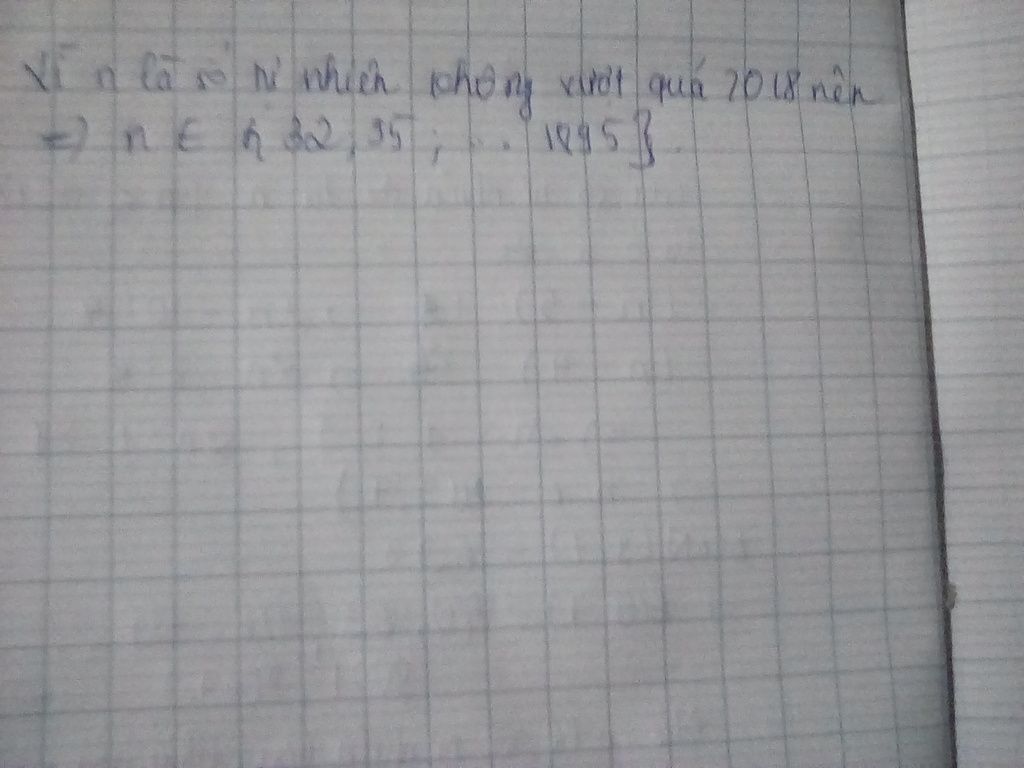 Vì n là số tự nhiên không vượt quá 2018 nên
=) n ∈ { 32; 95; ... 1995}